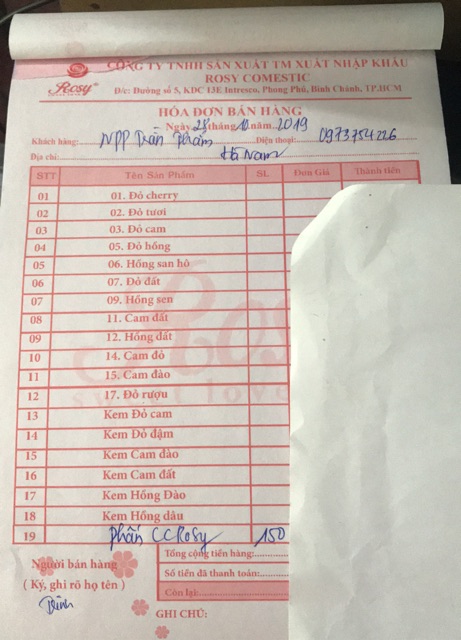 CÔNG TY TNHH SẢN XUẤT TM XUẤT NHẬP KHẨU
Rosy
ROSY COMESTIC
Đ/c: Đường số 5, KDC 13E Intresco, Phong Phú, Bình Chánh, TP.HCM
HÓA ĐƠN BÁN HÀNG
Ngày 28 tháng 10 năm 2019
Khách hàng: NPP Trần Phẩm Điện thoại: 0973754226
Địa chỉ: Hà Nam
STT Tên Sản Phẩm SL Đơn Giá Thành tiền
01 01. Đỏ cherry
02 02. Đỏ tươi
03 03. Đỏ cam
04 05. Đỏ hồng
05 06. Hồng san hô
06 07. Đỏ đất
07 09. Hồng sen
08 11. Cam đất
09 12. Hồng đất
10 14. Cam đỏ
11 15. Cam đào
12 17. Đỏ rượu
13 Kem Đỏ cam
14 Kem Đỏ đậm
15 Kem Cam đào
16 Kem Cam đất
17 Kem Hồng Đào
18 Kem Hồng dâu
19 Phấn CC Rosy 150
Tổng cộng tiền hàng:
Người bán hàng
Số tiền đã thanh toán:
( Ký, ghi rõ họ tên )
Còn lại:
GHI CHÚ: